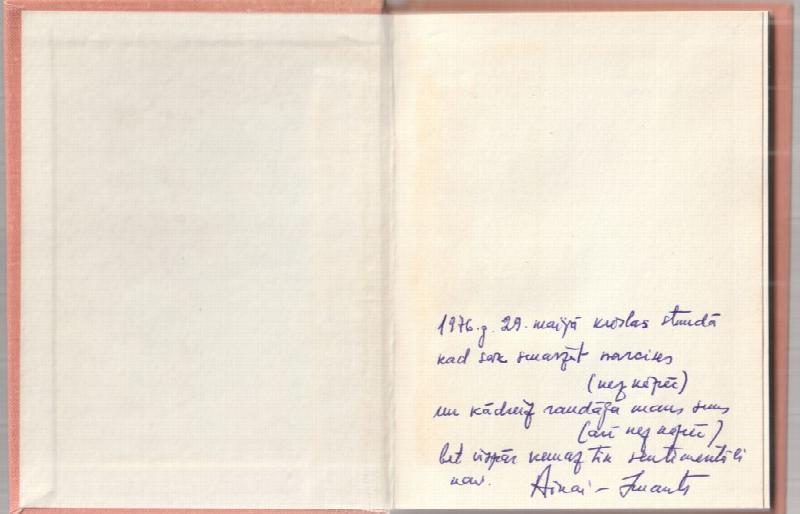 1976.g. 29. maijā krēslas stundā
kad sāk smaržot narcises
(nez kāpēc)
un kādreiz raudāja mans suns
(arī nez kāpēc)
bet vispār nemaz tik sentimentāli
nav. Ainai – Imants